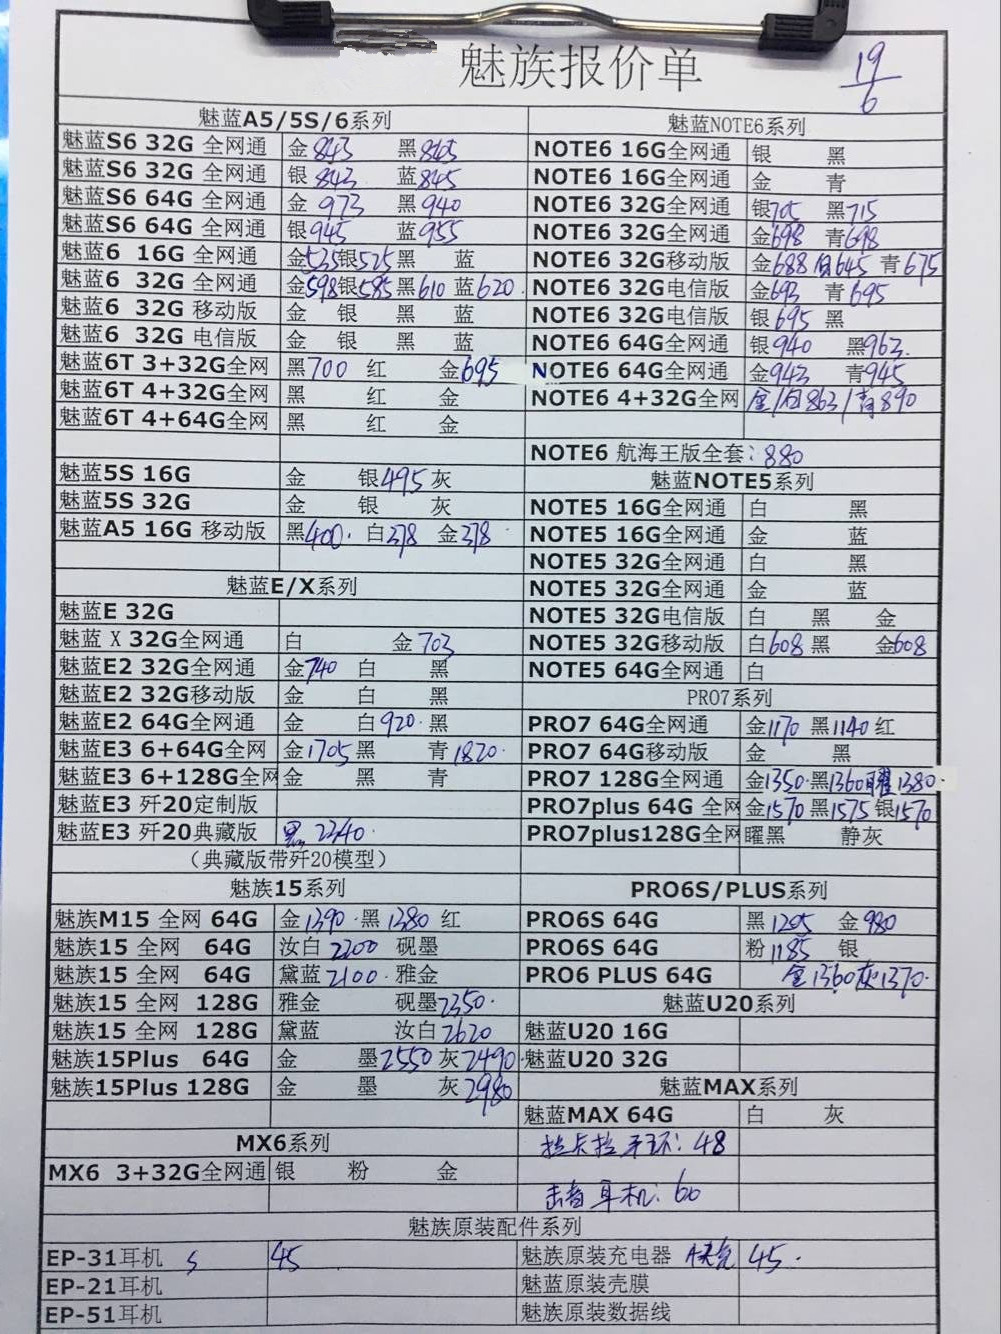 魅族报价单
19/6
魅蓝A5/5S/6系列
魅蓝S6 32G 全网通 金843 黑865
魅蓝S6 32G 全网通 银843 蓝845
魅蓝S6 64G 全网通 金973 黑940
魅蓝S6 64G 全网通 银945 蓝955
魅蓝6 16G 全网通 金535银525黑 蓝
魅蓝6 32G 全网通 金598银585黑610 蓝620.
魅蓝6 32G 移动版 金 银 黑 蓝
魅蓝6 32G 电信版 金 银 黑 蓝
魅蓝6T 3+32G全网 黑700 红 金695
魅蓝6T 4+32G全网 黑 红 金
魅蓝6T 4+64G全网 黑 红 金
魅蓝5S 16G 金 银495灰
魅蓝5S 32G 金 银 灰
魅蓝A5 16G 移动版 黑400. 白378 金378
魅蓝E/X系列
魅蓝E 32G
魅蓝 X 32G全网通 白 金703
魅蓝E2 32G全网通 金740 白 黑
魅蓝E2 32G移动版 金 白 黑
魅蓝E2 64G全网通 金 白920.黑
魅蓝E3 6+64G全网 金1705黑 青1820.
魅蓝E3 6+128G全网 金 黑 青
魅蓝E3 歼20定制版
魅蓝E3 歼20典藏版 黑 2240.
（典藏版带歼20模型）
魅族15系列
魅族M15 全网 64G 金1390.黑1380 红
魅族15 全网 64G 汝白2200 砚墨
魅族15 全网 64G 黛蓝2100.雅金
魅族15 全网 128G 雅金 砚墨2350.
魅族15 全网 128G 黛蓝 汝白2620
魅族15Plus 64G 金 墨2550灰2490.
魅族15Plus 128G 金 墨 灰2980
MX6系列
MX6 3+32G全网通 银 粉 金
魅蓝NOTE6系列
NOTE6 16G全网通 银 黑
NOTE6 16G全网通 金 青
NOTE6 32G全网通 银705 黑715
NOTE6 32G全网通 金698 青698
NOTE6 32G移动版 金688 白645 青675
NOTE6 32G电信版 金693 青695
NOTE6 32G电信版 银695 黑
NOTE6 64G全网通 银940 黑963.
NOTE6 64G全网通 金943 青945
NOTE6 4+32G全网 金/白863/青890
NOTE6 航海王版全套：880
魅蓝NOTE5系列
NOTE5 16G全网通 白 黑
NOTE5 16G全网通 金 蓝
NOTE5 32G全网通 白 黑
NOTE5 32G全网通 金 蓝
NOTE5 32G电信版 白 黑 金
NOTE5 32G移动版 白608黑 金608
NOTE5 64G全网通 白
PRO7系列
PRO7 64G全网通 金1170 黑1140红
PRO7 64G移动版 金 黑
PRO7 128G全网通 金1350.黑1360曜1380.
PRO7plus 64G 全网 金1570黑1575 银1570
PRO7plus128G全网 曜黑 静灰
PRO6S/PLUS系列
PRO6S 64G 黑1205 金980
PRO6S 64G 粉1185 银
PRO6 PLUS 64G 金1360灰1370.
魅蓝U20系列
魅蓝U20 16G
魅蓝U20 32G
魅蓝MAX系列
魅蓝MAX 64G 白 灰
拉卡拉手环：48
耳机：60
魅族原装配件系列
EP-31耳机 S 45
EP-21耳机
EP-51耳机
魅族原装充电器 A快充 45.
魅蓝原装壳膜
魅族原装数据线